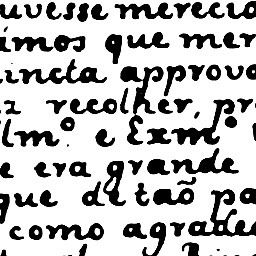 uvesse merecido
imos que mer
incta approva
recolher, pr
Ilm.º e Exm.º
e era grande
que de taõ pa
como agrade